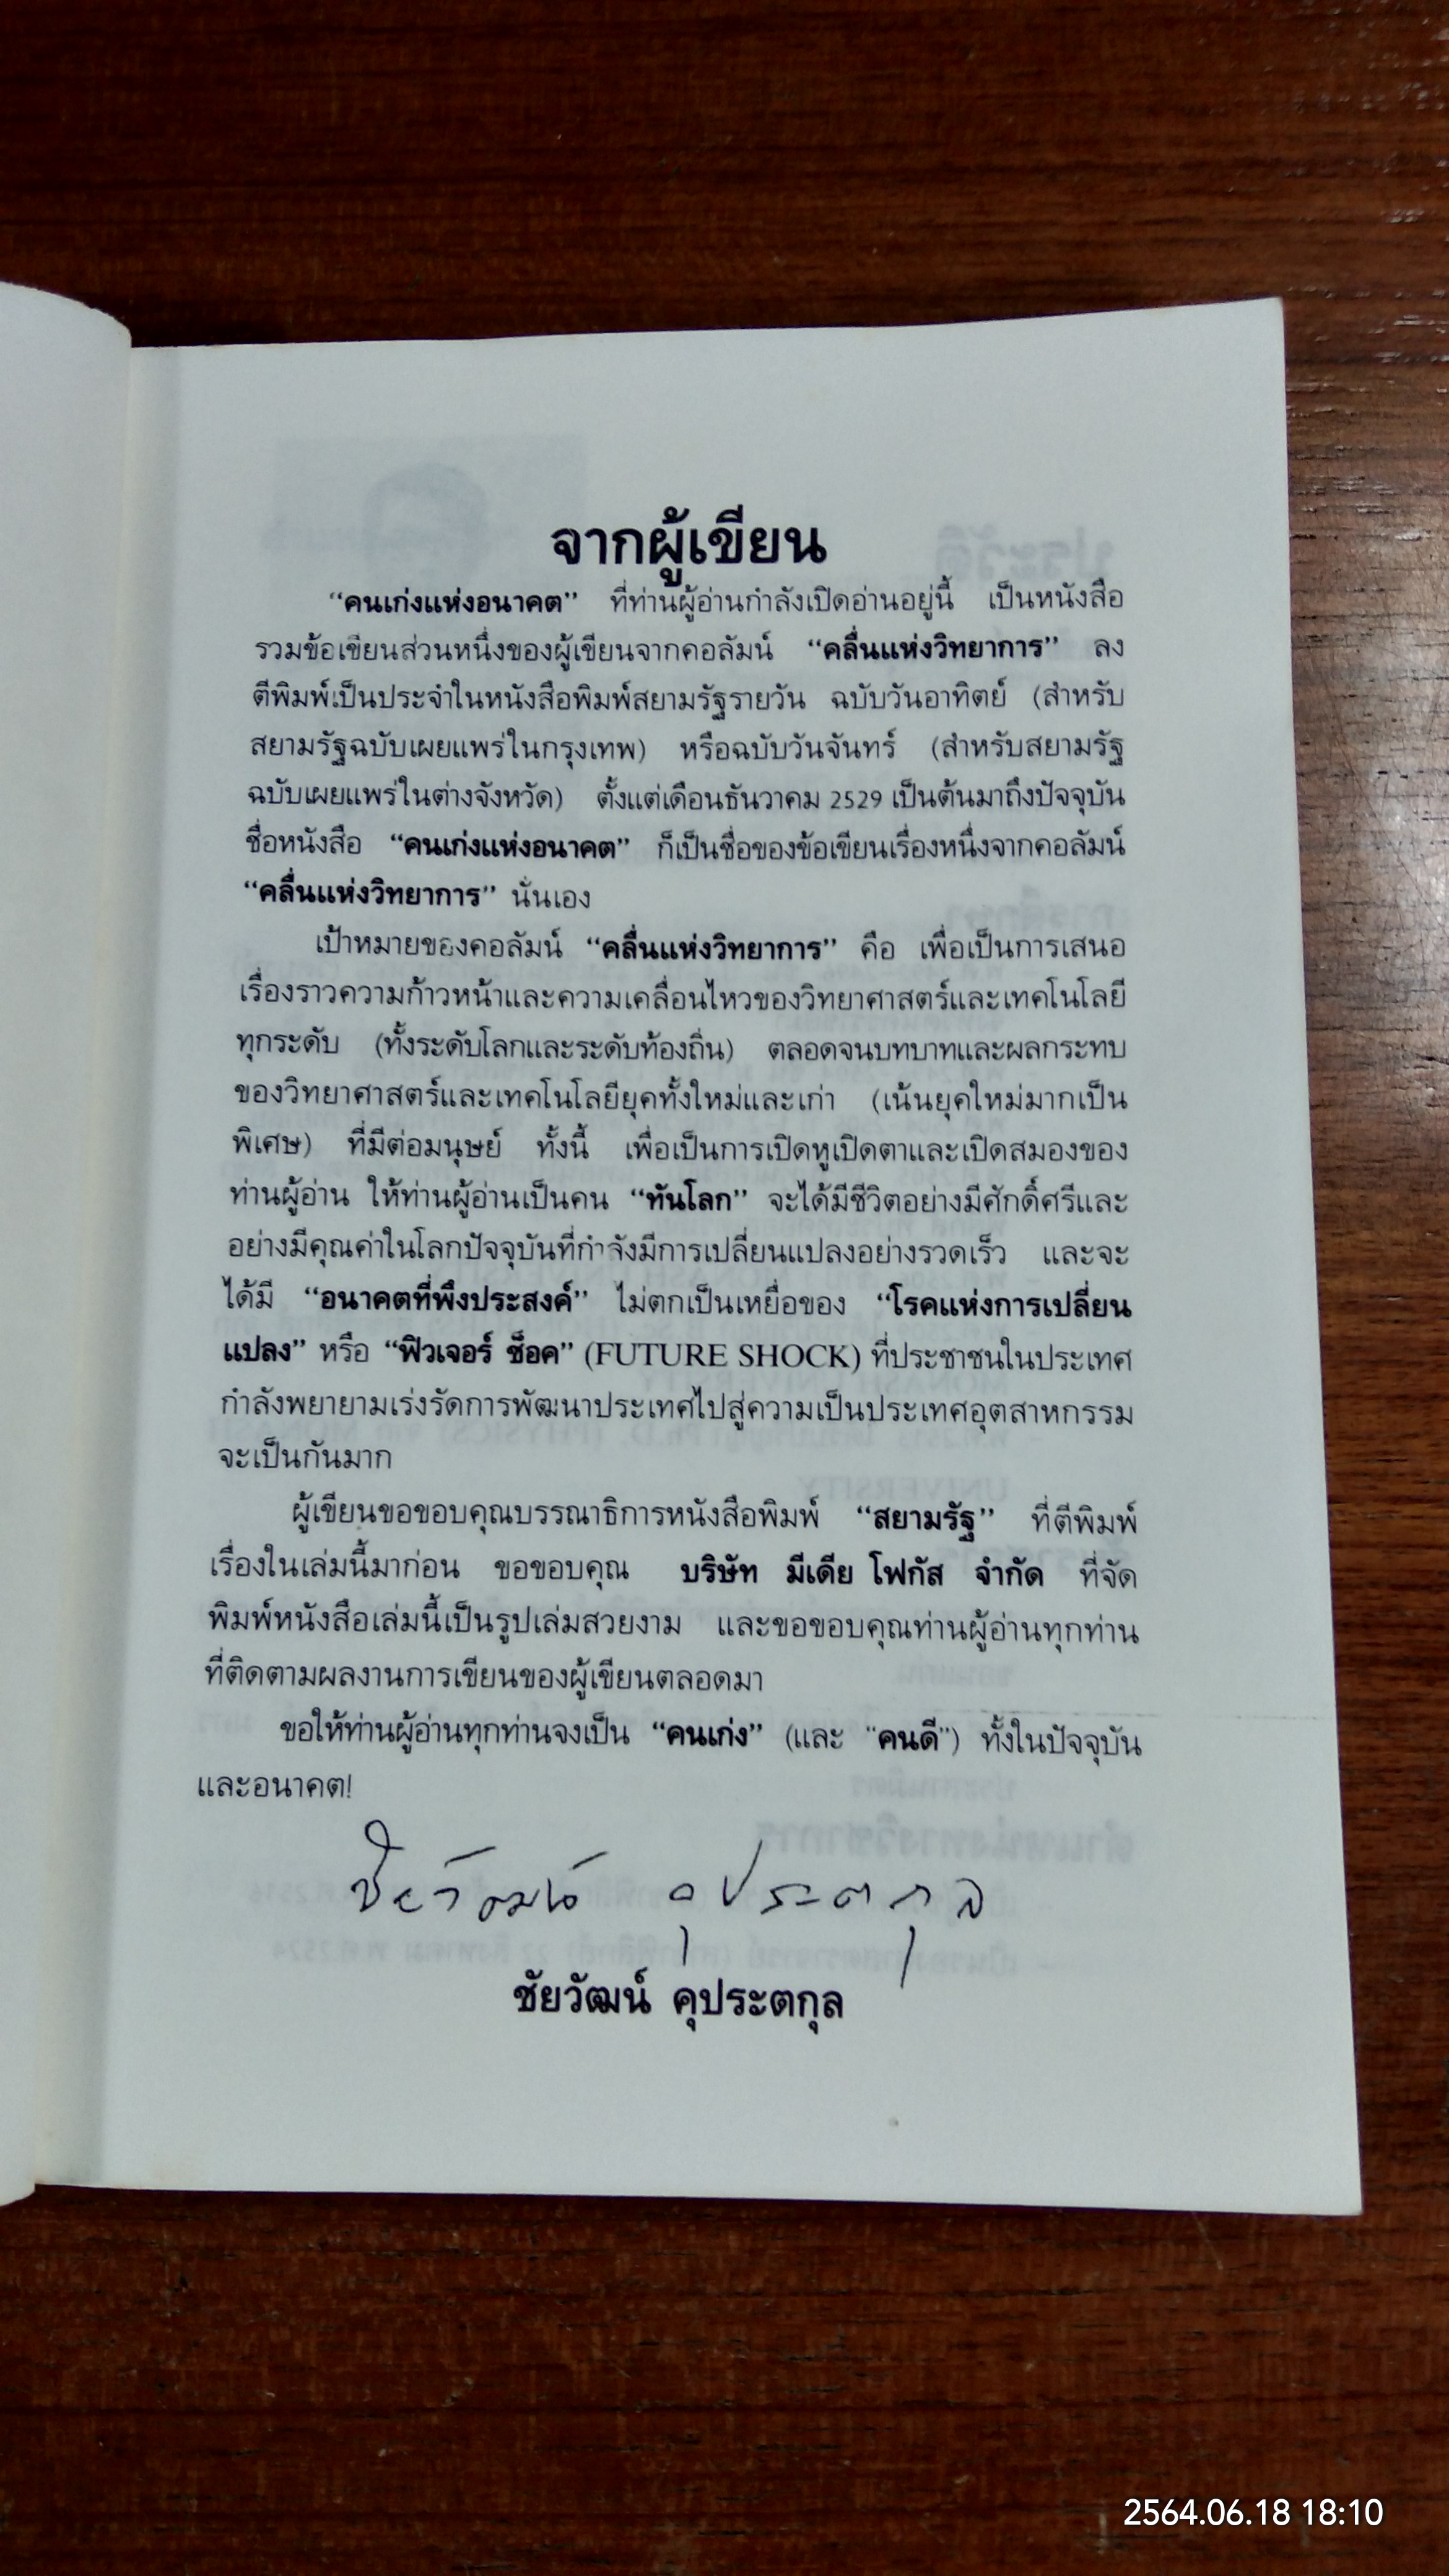 จากผู้เขียน
“คนเก่งแห่งอนาคต” ที่ท่านผู้อ่านกำลังเปิดอ่านอยู่นี้ เป็นหนังสือ
รวมข้อเขียนส่วนหนึ่งของผู้เขียนจากคอลัมน์ “คลื่นแห่งวิทยาการ” ลง
ตีพิมพ์เป็นประจำในหนังสือพิมพ์สยามรัฐรายวัน ฉบับวันอาทิตย์ (สำหรับ
สยามรัฐฉบับเผยแพร่ในกรุงเทพ) หรือฉบับวันจันทร์ (สำหรับสยามรัฐ
ฉบับเผยแพร่ในต่างจังหวัด) ตั้งแต่เดือนธันวาคม 2529 เป็นต้นมาถึงปัจจุบัน
ชื่อหนังสือ “คนเก่งแห่งอนาคต” ก็เป็นชื่อของข้อเขียนเรื่องหนึ่งจากคอลัมน์
“คลื่นแห่งวิทยาการ” นั่นเอง
เป้าหมายของคอลัมน์ “คลื่นแห่งวิทยาการ” คือ เพื่อเป็นการเสนอ
เรื่องราวความก้าวหน้าและความเคลื่อนไหวของวิทยาศาสตร์และเทคโนโลยี
ทุกระดับ (ทั้งระดับโลกและระดับท้องถิ่น) ตลอดจนบทบาทและผลกระทบ
ของวิทยาศาสตร์และเทคโนโลยียุคทั้งใหม่และเก่า (เน้นยุคใหม่มากเป็น
พิเศษ) ที่มีต่อมนุษย์ ทั้งนี้ เพื่อเป็นการเปิดหูเปิดตาและเปิดสมองของ
ท่านผู้อ่าน ให้ท่านผู้อ่านเป็นคน “ทันโลก” จะได้มีชีวิตอย่างมีศักดิ์ศรีและ
อย่างมีคุณค่าในโลกปัจจุบันที่กำลังมีการเปลี่ยนแปลงอย่างรวดเร็ว และจะ
ได้มี “อนาคตที่พึงประสงค์” ไม่ตกเป็นเหยื่อของ “โรคแห่งการเปลี่ยน
แปลง” หรือ “ฟิวเจอร์ ช็อค” (FUTURE SHOCK) ที่ประชาชนในประเทศ
กำลังพยายามเร่งรัดการพัฒนาประเทศไปสู่ความเป็นประเทศอุตสาหกรรม
จะเป็นกันมาก
ผู้เขียนขอขอบคุณบรรณาธิการหนังสือพิมพ์ “สยามรัฐ” ที่ตีพิมพ์
เรื่องในเล่มนี้มาก่อน ขอขอบคุณ บริษัท มีเดีย โฟกัส จำกัด ที่จัด
พิมพ์หนังสือเล่มนี้เป็นรูปเล่มสวยงาม และขอขอบคุณท่านผู้อ่านทุกท่าน
ที่ติดตามผลงานการเขียนของผู้เขียนตลอดมา
ขอให้ท่านผู้อ่านทุกท่านจงเป็น “คนเก่ง” (และ “คนดี”) ทั้งในปัจจุบัน
และอนาคต!
ชัยวัฒน์ คุประตกุล
ชัยวัฒน์ คุประตกุล
2564.06.18 18:10